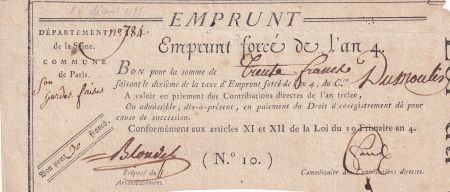 EMPRUNT
DÉPARTEMENT
de la Seine.
COMMUNE
de Paris.
nº 784
Emprunt forcé de l'an 4.
BON pour la somme de trente francs
faisant le dixième de la taxe d'Emprunt forcé de l'an 4, du C.en Dumoulin
A valoir en payement des Contributions directes de l'an treize,
Ou admissible, dès-à-présent, en paiement du Droit d'enregistrement dû pour
cause de succession.
Conformément aux articles XI et XII de la Loi du 19 Frimaire an 4.
Bon pour 30 francs.
Blondel
(N.º 10.)
Préposé du
Arrondissement.
Commissaire des Contributions directes.